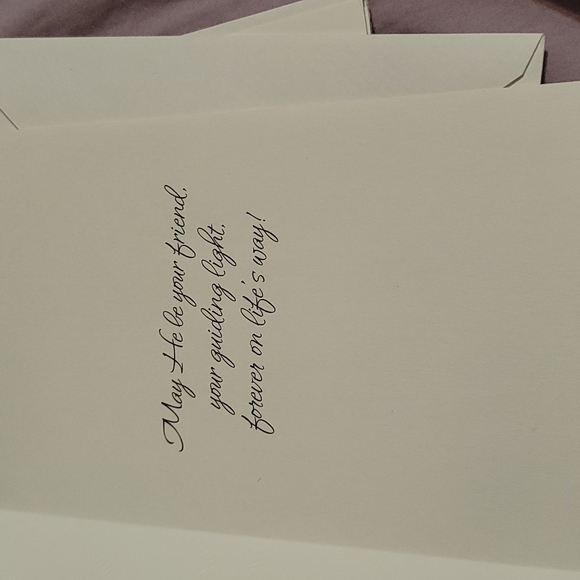 May He be your friend,
your guiding light,
forever on life's way!